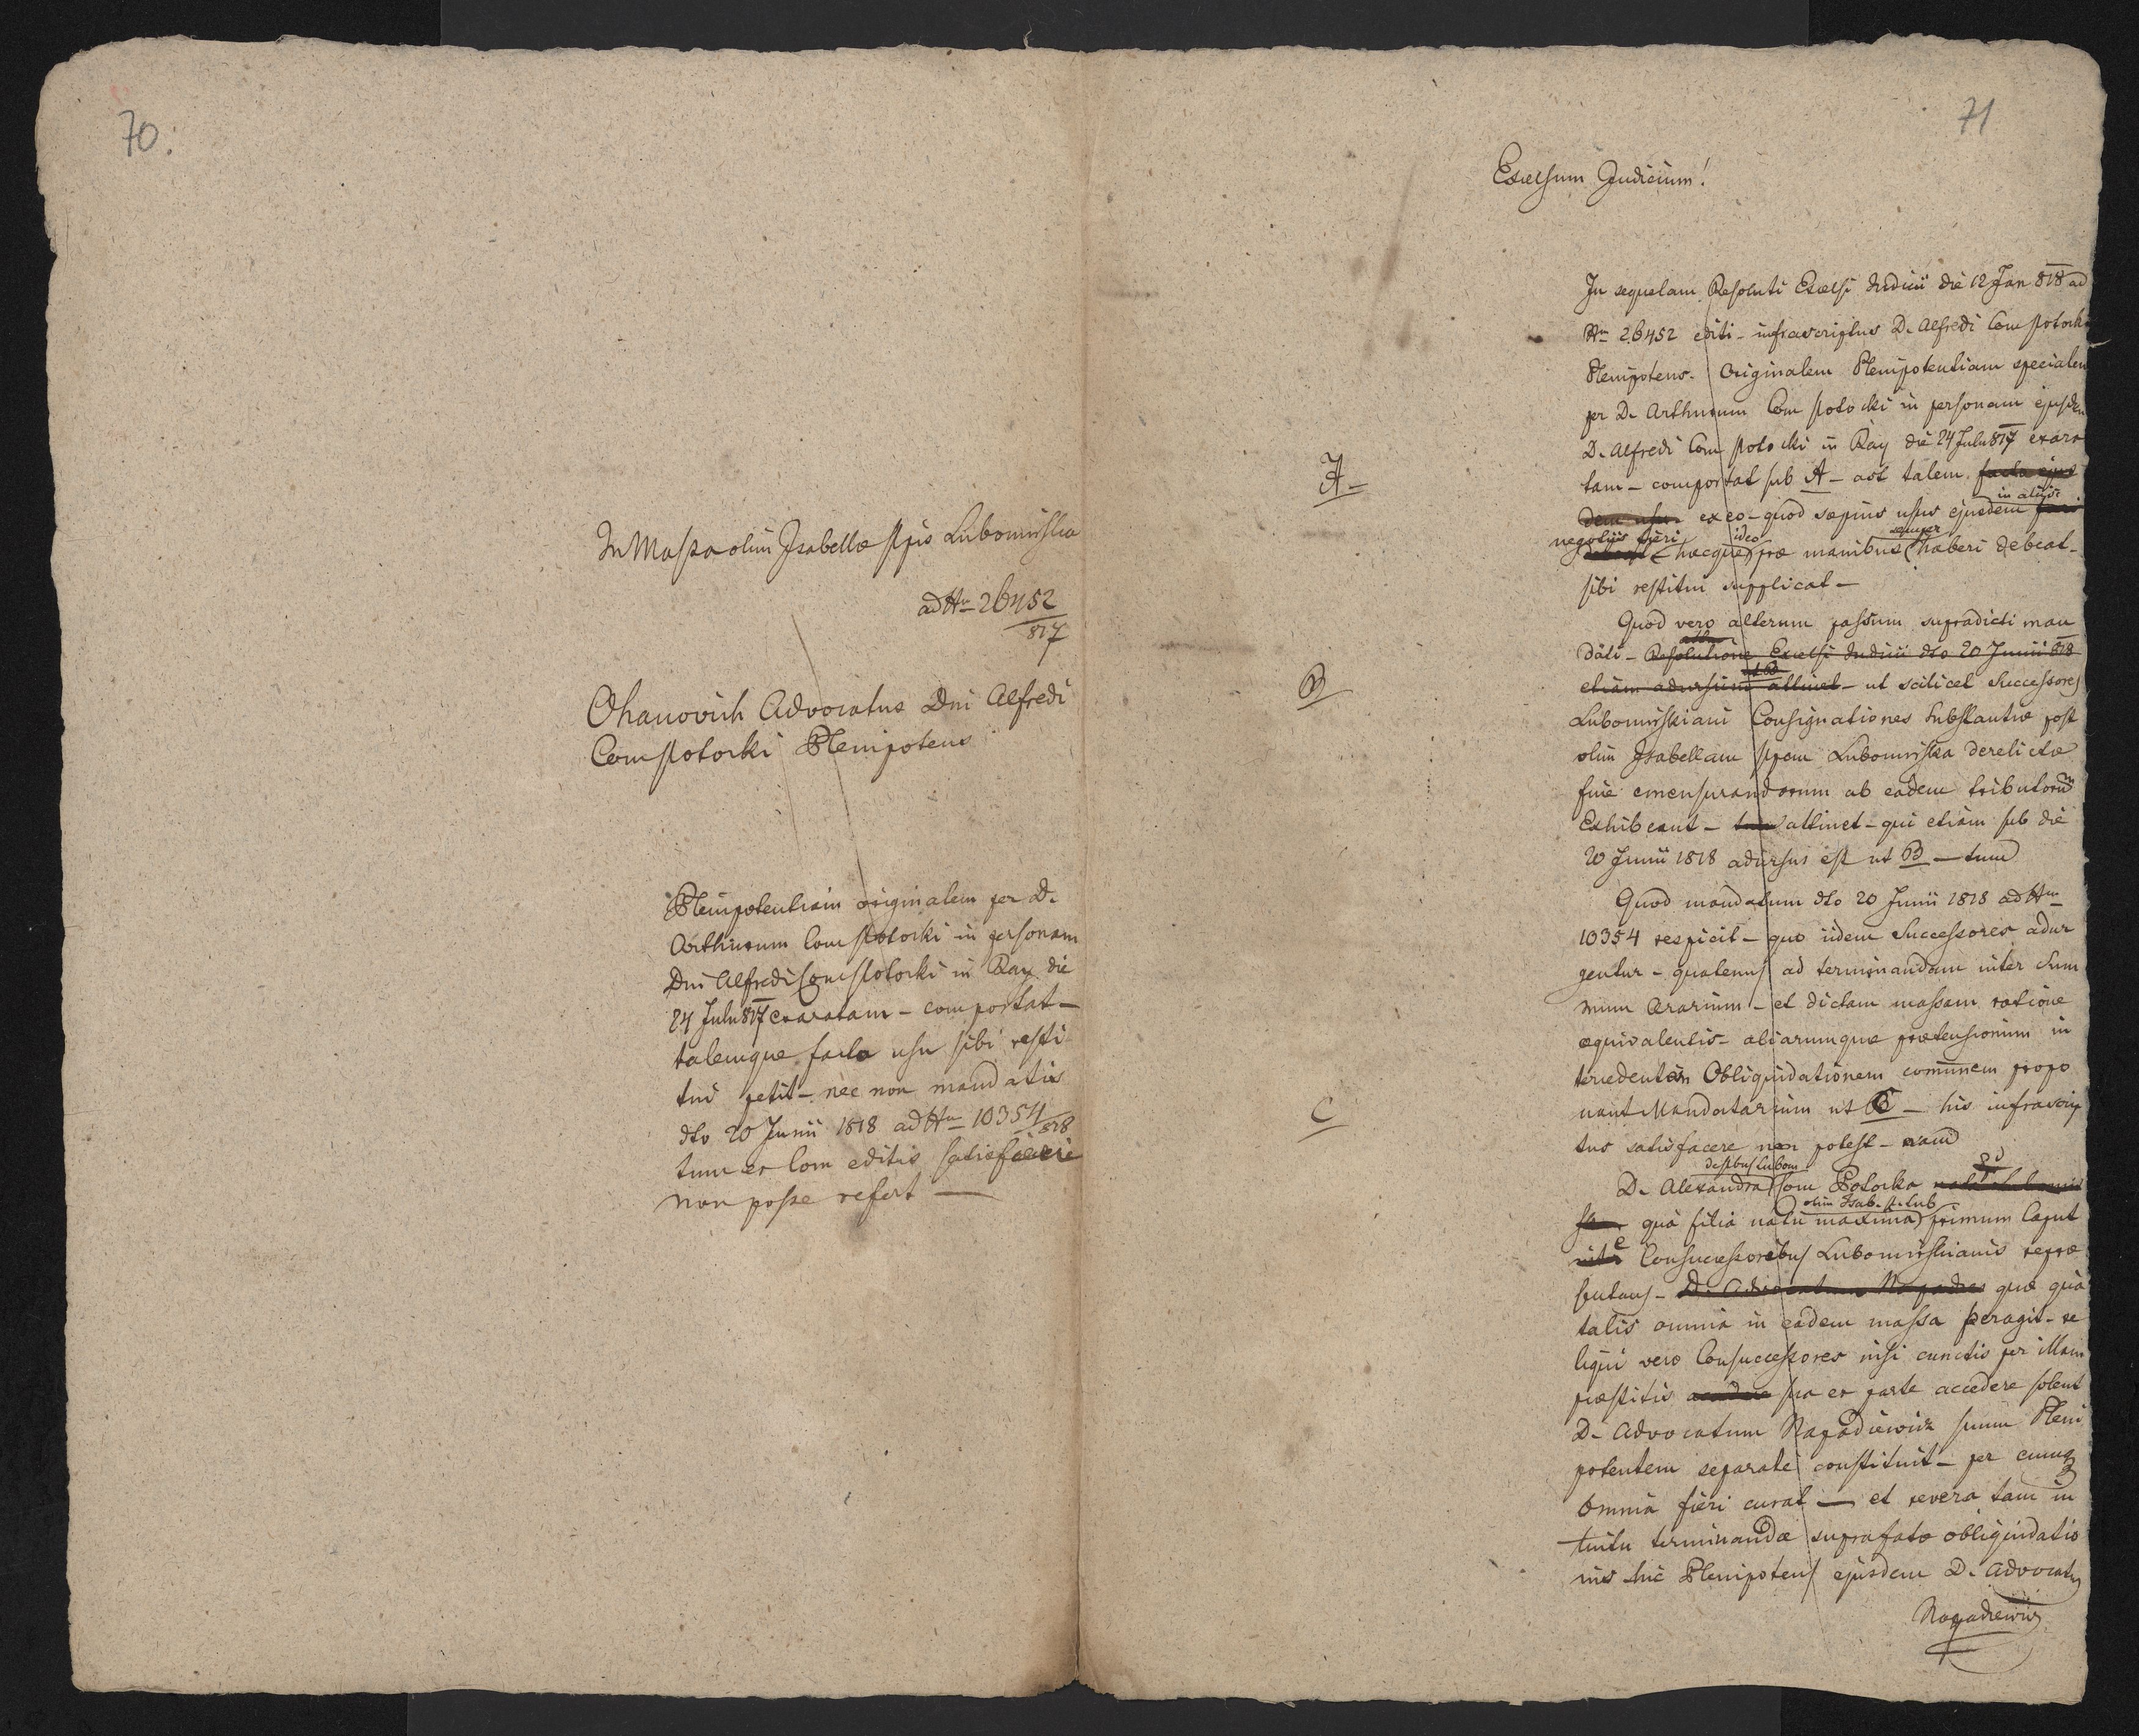 70.
In Massa olim Isabellæ Ppis Lubomirska
ad Nm 26452
817
Ohanovich Advocatus Dni Alfredi
Com Potocki Plenipotens
Plenipotentiam originalem per D.
Arthurum Com Potocki in personam
Dni Alfredi Com Potocki in Ray die
24 Julii 817 exaratam – comportat –
talemque facto usu sibi resti
tui petit – nec non mandatis
dto 20 Junii 1818 ad Nm 10354/818
tum ex Com editis satisfacere
non posse refert —
71
Excelsum Judicium!
In sequelam Resoluti Excelsi Judicii die 12 Jan 818 ad
Nm 26452 editi – infrascriptus D. Alfredi Com Potocki
Plenipotens. Originalem Plenipotentiam specialem
per D. Arthurum Com Potocki in personam ejusdem
D. Alfredi Com Potocki in Ray die 24 Julii 817 exara
A –
tam – comportat sub A – ast talem facto ejus
in aliis
dem usu ex eo – quod sæpius usus ejusdem
negotiis fieri ideo semper
hæcque præ manibus haberi debeat –
sibi restitui supplicat —
Quod vero alterum passum supradicti man
dati – Resolutione Excelsi Judicii dto 20 Junii 818
B
etiam adursum attinet – ut scilicet Successores
Lubomirskiani Consignationes Substantiæ post
olim Isabellam Ppem Lubomirska derelictæ
fine emensurandorum ab eadem tributorum
Exhibeant – attinet – qui etiam sub die
20 Junii 1818 adursus est ut B — tum
Quod mandatum dto 20 Junii 1818 ad Nm
10354 respicit – quo iidem Successores adur
gentur – quatenus ad terminandam inter Sum
mum Ærarium – et dictam massam ratione
æquivalentis – aliarumque prætensionum in
tercedentem Obliquidationem communem propo
C
nant Mandatarium ut C – his infrascrip
tus satisfacere non potest – nam
de Ppbus Lubom
D. Alexandra Com Potocka
olim Isab. P. Lub
quà filia natu maxima primum Caput
e Consuccessoribus Lubomirskianis repræ
sentans – D. Advocatum quæ quà
talis omnia in eadem massa peragit – re
liqui vero Consuccessores nisi cunctis per illam
præstitis pro ex parte accedere solent
D. Advocatum Napadiewicz suum Pleni
potentem separate constituit – per eumq
omnia fieri curat — et revera tam in
tuitu terminandæ suprafatæ obliquidatio
nis hic Plenipotens ejusdem D. Advocatus
Napadiewicz